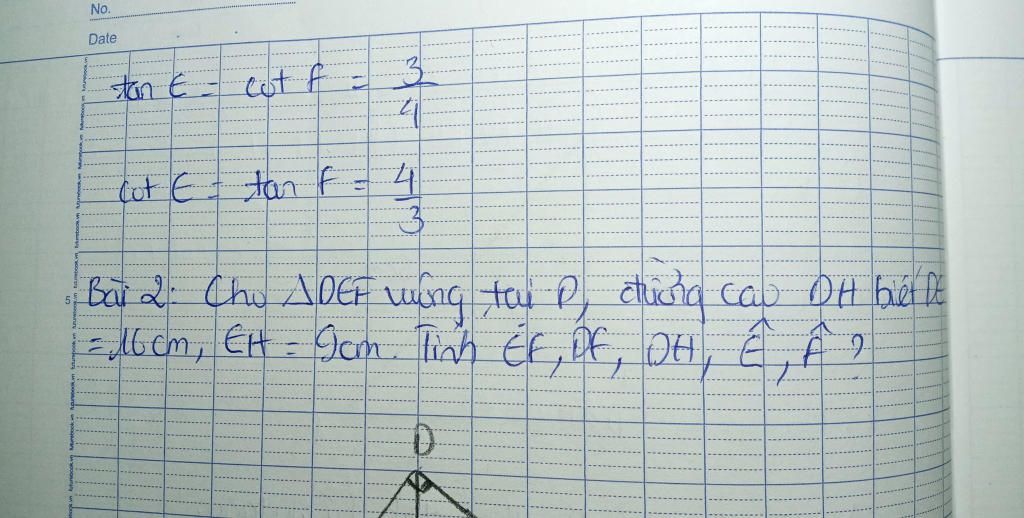 No.
Date
tan E = cot F = 3/4
cot E = tan F = 4/3
5 Bài 2: Cho ΔDEF vuông tại D, đường cao DH biết DE
= 16cm, EH = 9cm. Tính EF, DF, DH, Ê, F̂ ?
D